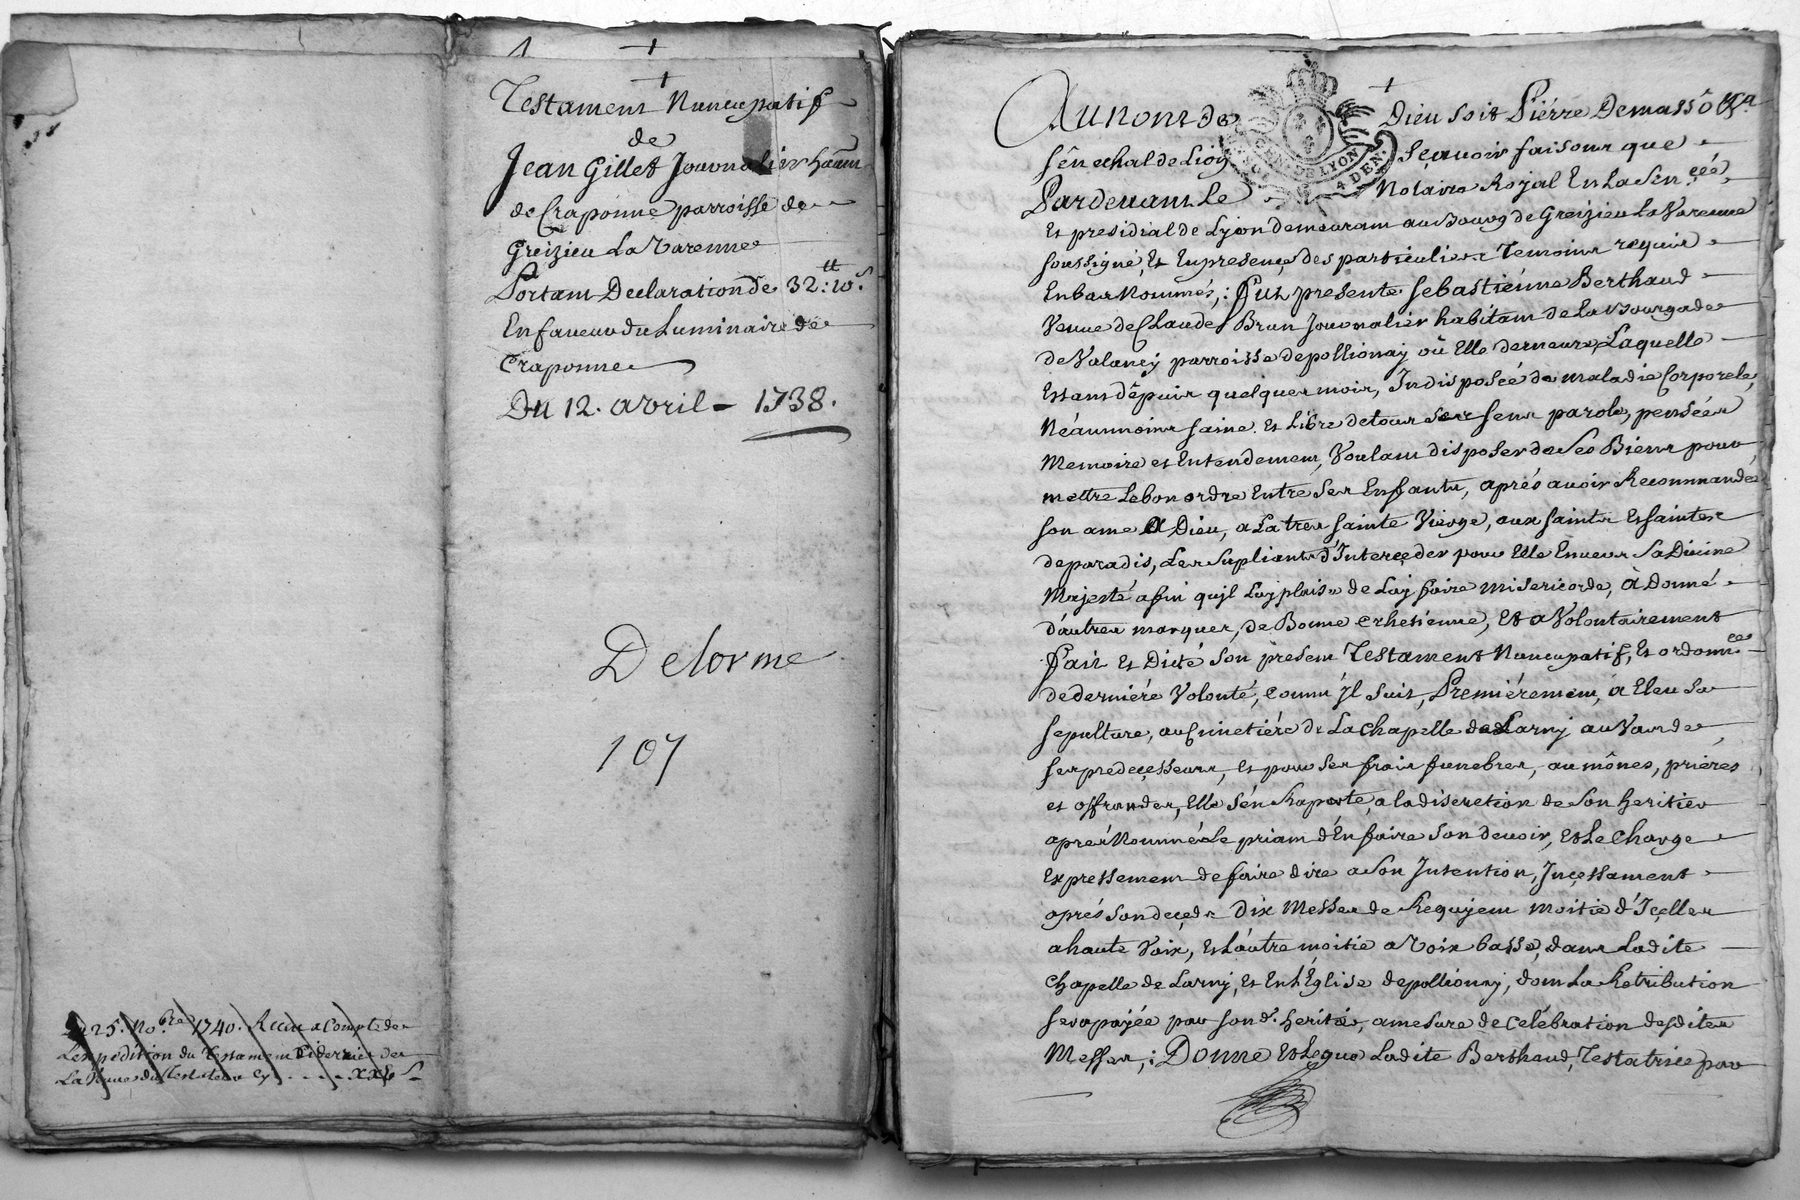 Testament Nuncupatif
de
Jean Gillet Journalier habitant
de Craponne parroisse de
Greizieu La Varenne
Portant Declaration de 32:10.s
En faveur du Luminaire de
Craponne
Du 12. avril - 1738.
Delorme
107
Du 25. No.bre 1740. Receu a Compte de
L'expedition du Testament cy dernier de
La veuve du Testateur cy
Au nom de Dieu Soit Piérre Demasso
sênechal de Lion Sçavoir faisons que
Pardevant Le Notaire Royal En La Sen.céé
Et presidial de Lyon demeurant au Bourg de Greizieu La Varenne
soussigné, Et En presence des particuliers Temoins requis
En bas Nommés,: Fut presente Sebastiénne Berthaud
Veuve de Claude Brun Journalier habitant de La Bourgade
de Valancy parroisse de pollionay où Elle demeure, Laquelle
Estant dêpuis quelques mois, Indisposéé de maladie Corporele,
Néanmoins saine. Et Libre de tous ses sens parole, pensées
Memoire et Entendement, Voulant disposer de Ses Biens pour
mettre Le bon ordre Entre Ses Enfants, aprés avoir Recommandé
son ame A Dieu, a La tres sainte Viérge, aux saints Et saintes
de paradis, Les supliants d'Interçeder pour Elle Envers Sa Divine
Majesté afin qu'jl Luy plaise de Luy faire misericorde, à donné
d'autres marques, de Bonne crhêtienne, Et a Volontairement
Fait Et Dicté Son present Testament Nuncupatif, Et ordonnces
de derniére Volonté, comm' jl suit, Premiérement, a Eleu Sa
sepulture, au Cimetiére de La Chapelle de Larny au Van de
ses predeçesseurs, Et pour Ses frais funebres, aumônes, prières
et offrandes, Elle S'én Raporte, a la discretion de Son heritier
aprés Nommé Le priant d'En faire Son devoir, Et Le Charge
Expressement de faire dire a Son Intention, Inçessament
aprés Son deçeds Dix Messes de Requjem moitie d'Içelles
a haute Voix, Et L'autre moitie a Voix basse, dans Ladite
Chapelle de Larny, Et En L'Église de pollionay, dont La Retribution
sera payée par son d. heritier, a mesure de Celébration desdites
Messes,: Donne Et Legue Ladite Berthaud, Testatrice par